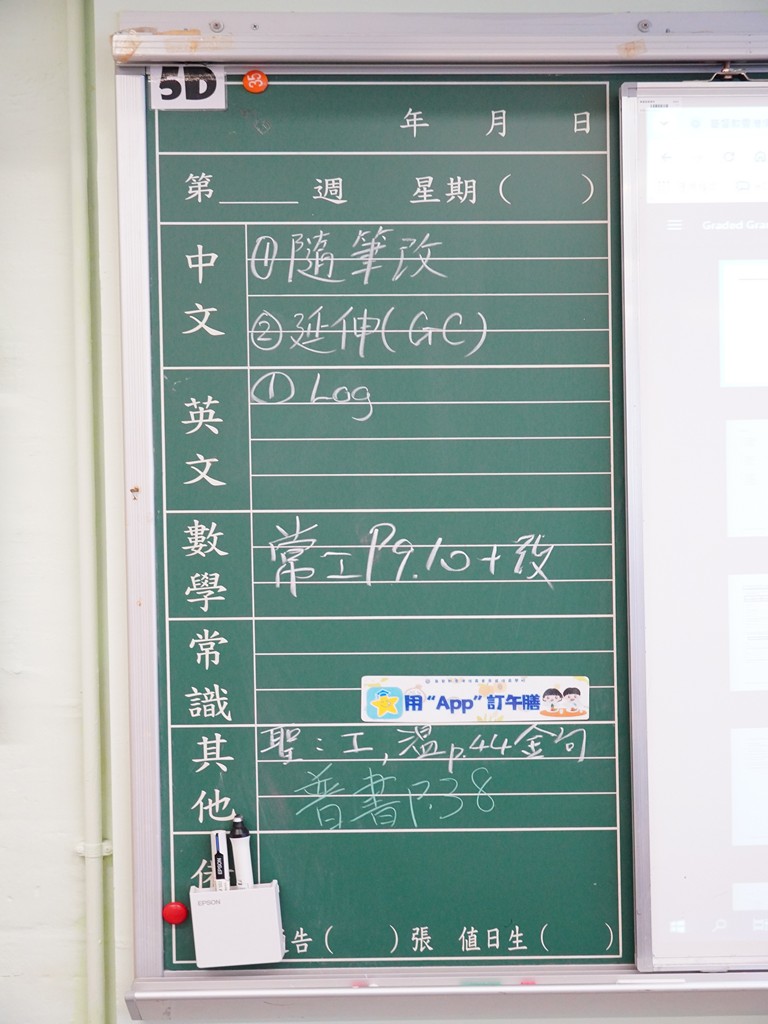 5D
35
年 月 日
第____週 星期( )
中文
①隨筆改
②延伸(GC)
英文
① Log
數學
常工P9.10+改
常識
用“App”訂午膳
其他
聖:工,溫p.44金句
普書P.38
EPSON
EPSON
告( )張 值日生( )